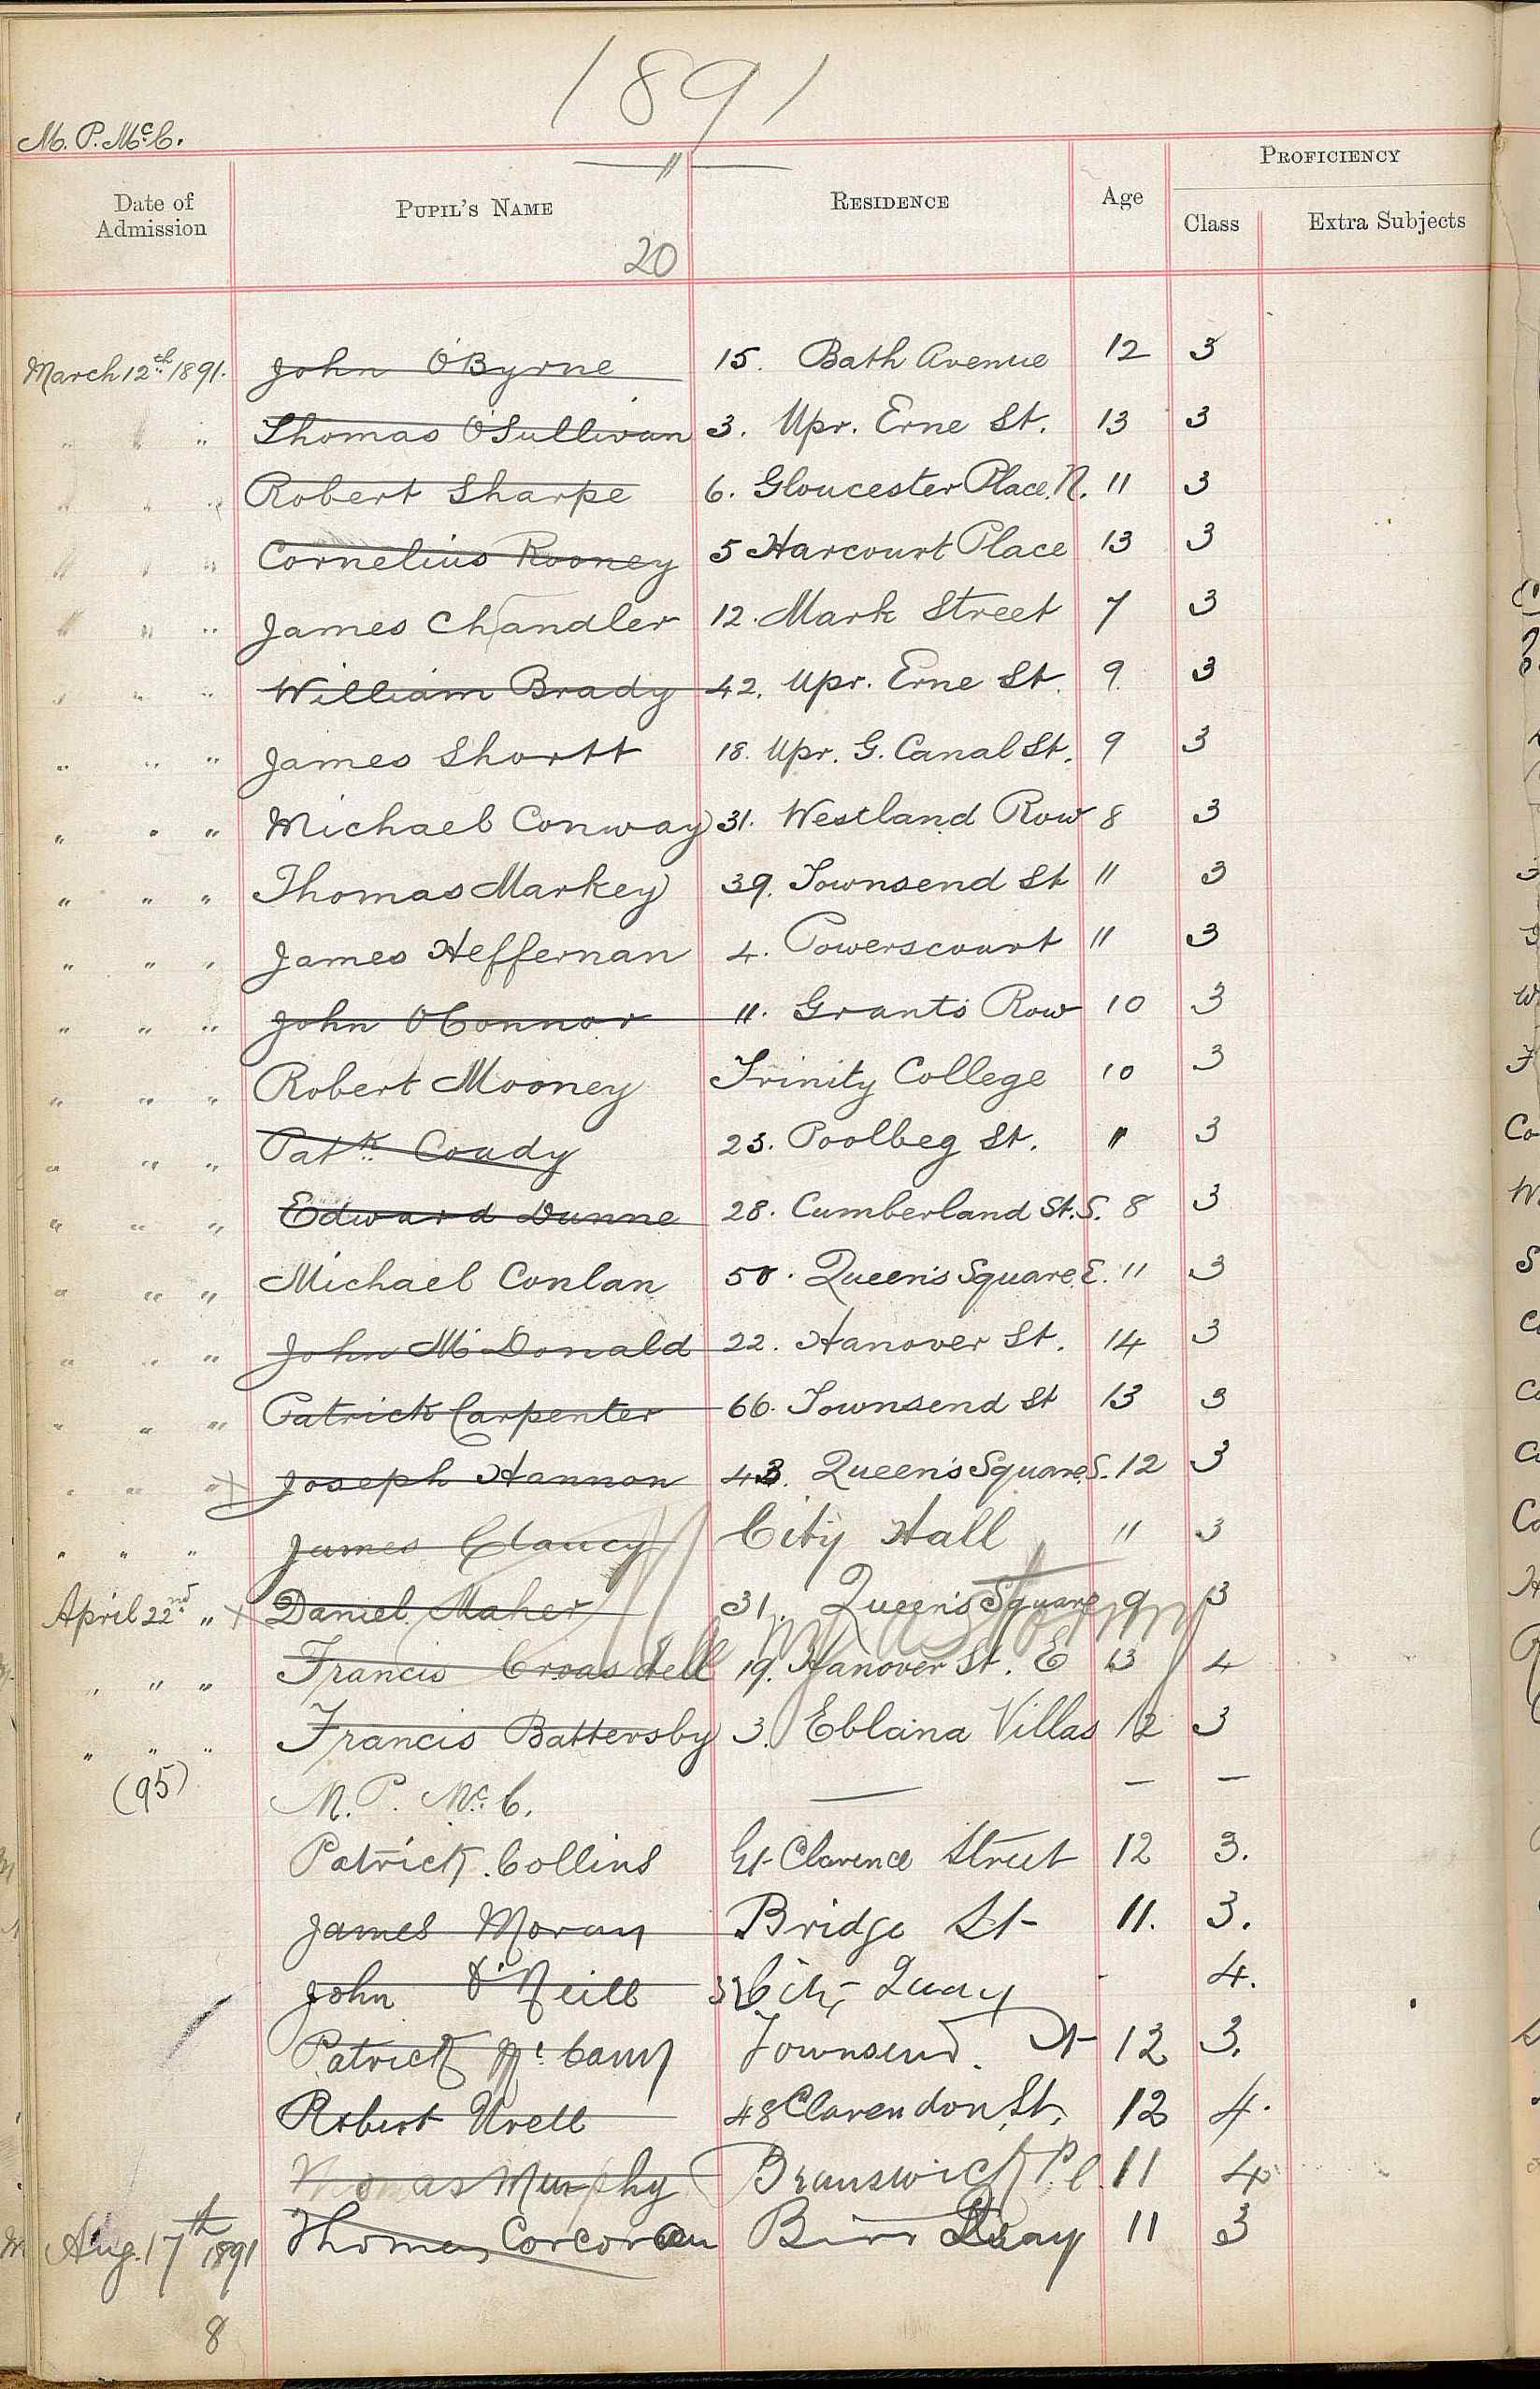 1891
M. P. McC.
"
PROFICIENCY
Date of Admission PUPIL'S NAME RESIDENCE Age Class Extra Subjects
20
March 12th 1891. John O'Byrne 15. Bath Avenue 12 3
" " " Thomas O'Sullivan 3. Upr. Erne St. 13 3
" " " Robert Sharpe 6. Gloucester Place, N. 11 3
" " " Cornelius Rooney 5 Harcourt Place 13 3
" " " James Chandler 12. Mark Street 7 3
" " " William Brady 42. Upr. Erne St. 9 3
" " " James Shortt 18. Upr. G. Canal St. 9 3
" " " Michael Conway 31. Westland Row 8 3
" " " Thomas Markey 39. Townsend St 11 3
" " " James Heffernan 4. Powerscourt 11 3
" " " John O'Connor 11. Grants Row 10 3
" " " Robert Mooney Trinity College 10 3
" " " Patk. Coady 23. Poolbeg St. " 3
" " " Edward Dunne 28. Cumberland St. S. 8 3
" " " Michael Conlan 50. Queen's Square, E. 11 3
" " " John McDonald 22. Hanover St. 14 3
" " " Patrick Carpenter 66. Townsend St 13 3
" " " Joseph Hannon 43. Queen's Square, S. 12 3
" " " James Clancy City Hall 11 3
April 22nd " Daniel Maher 31. Queen's Square 9 3
" " " Francis Croasdell 19. Hanover St. E 13 4
" " " Francis Battersby 3. Eblana Villas 12 3
(95) M. P. McC. — — —
Patrick Collins Gt Clarence Street 12 3.
James Moran Bridge St 11. 3.
John O'Neill 32 City Quay - 4.
Patrick McCann Townsend St 12 3.
Robert Urell 48 Clarendon St. 12 4.
Thomas Murphy Brunswick Pl. 11 4
Aug. 17th 1891 Thomas Corcoran Quay 11 3
8